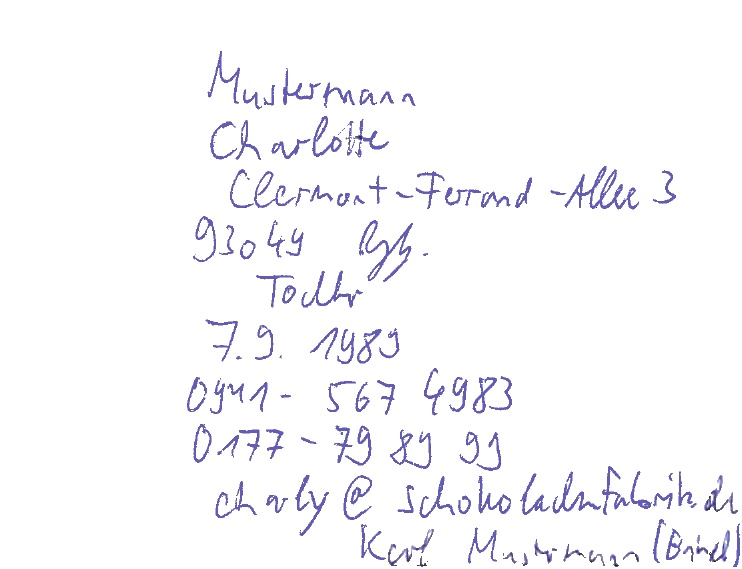 Mustermann
Charlotte
Clermont-Ferrand-Allee 3
93049 Rgb.
Tochter
7.9. 1989
0941- 567 4983
0177-79 89 99
charly@schokoladenfabrik.de
Karl Mustermann